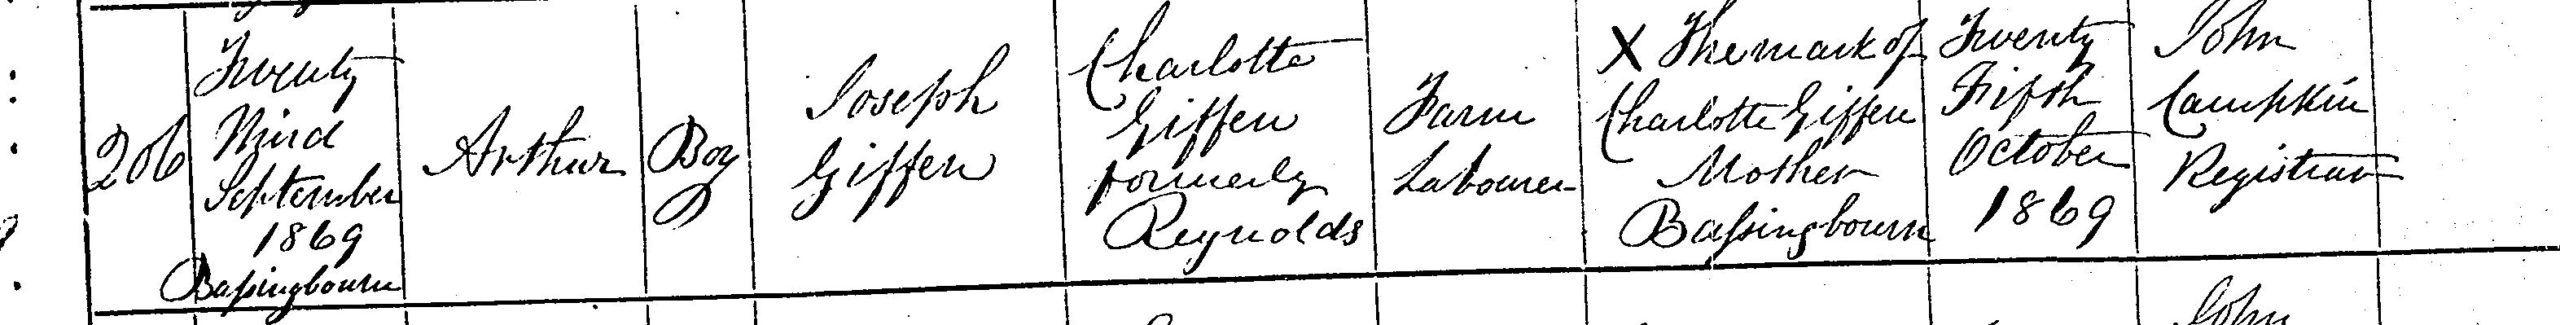 206
Twenty
Third
September
1869
Bassingbourn
Arthur
Boy
Joseph
Giffen
Charlotte
Giffen
formerly
Reynolds
Farm
Labourer
X The mark of
Charlotte Giffen
Mother
Bassingbourn
Twenty
Fifth
October
1869
John
Campkin
Registrar
John